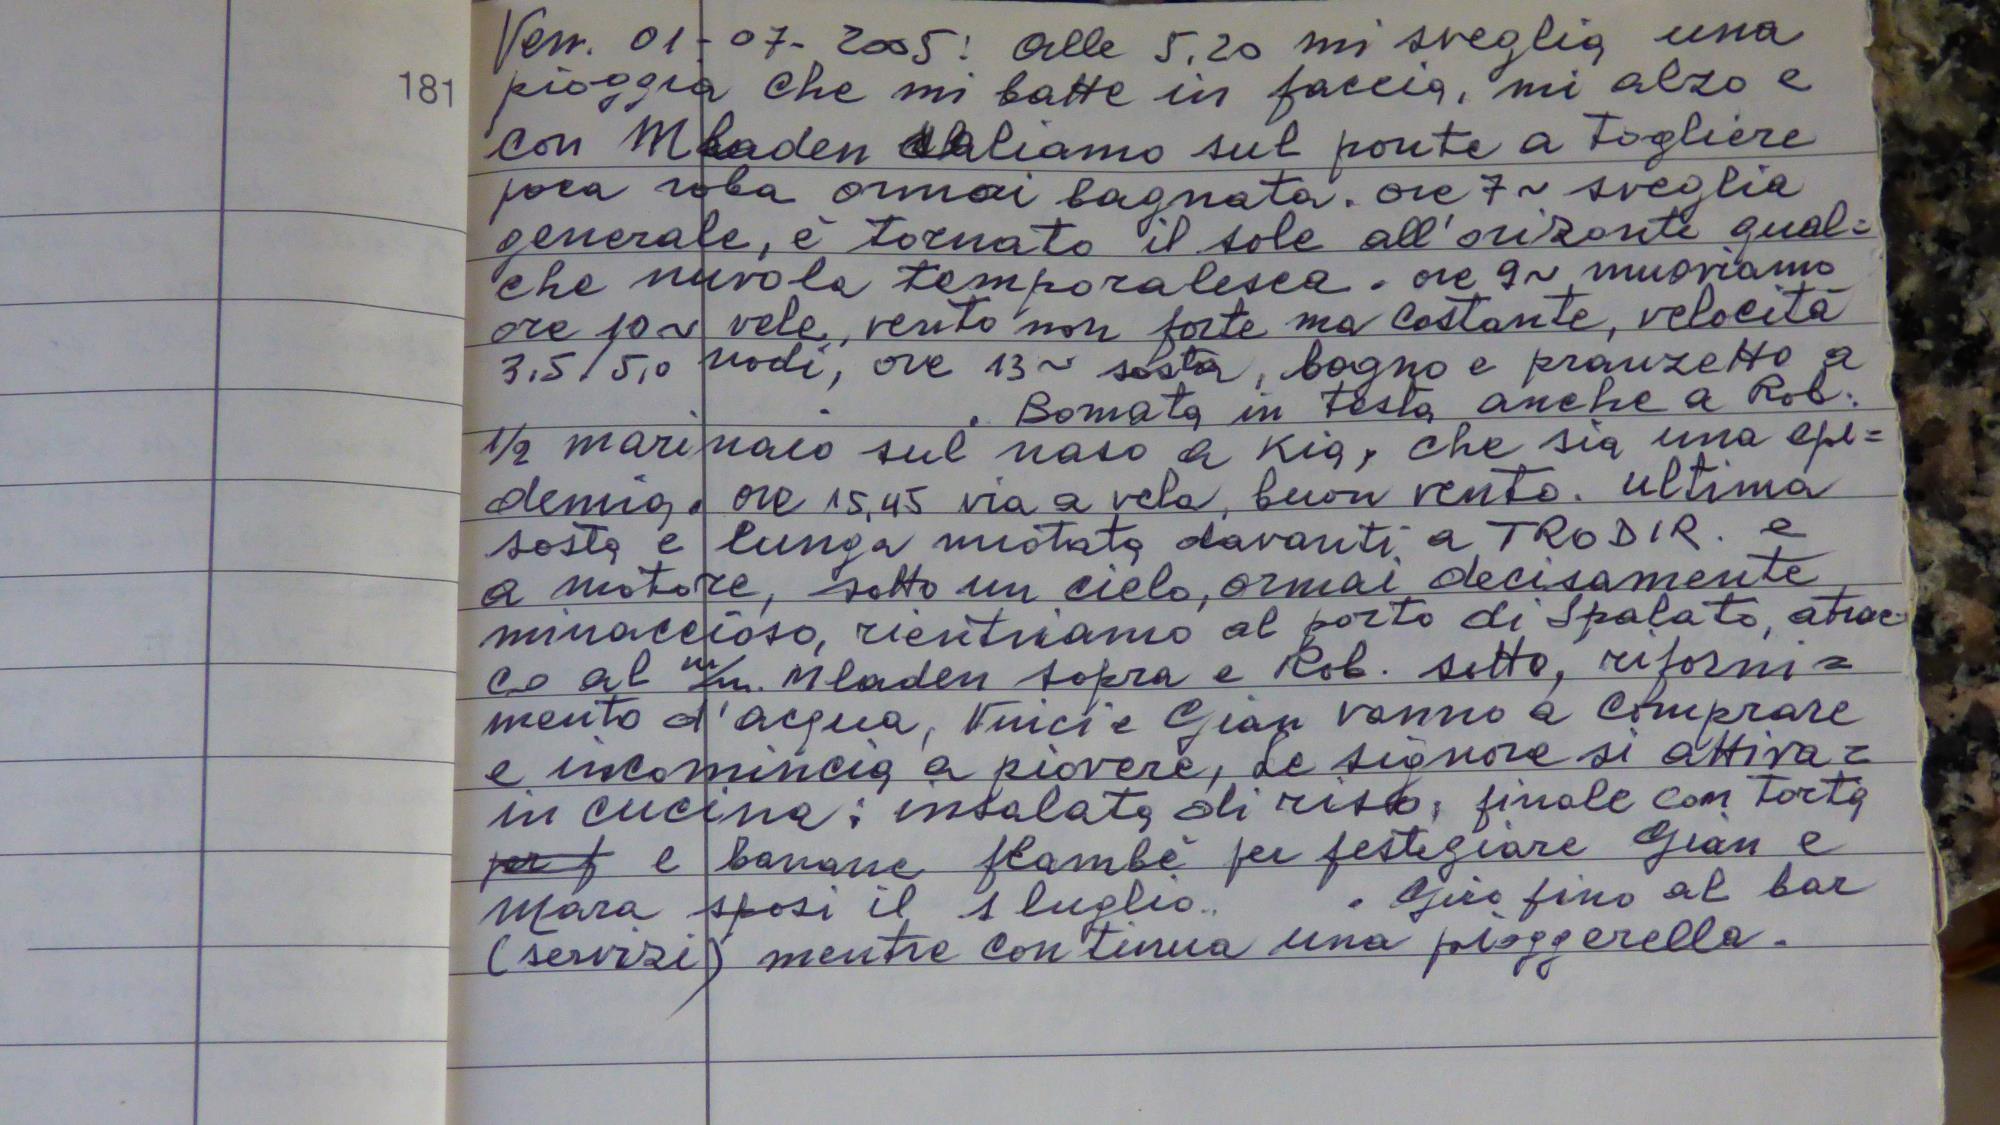 181
Ven. 01-07-2005: Alle 5,20 mi sveglia una
pioggia che mi batte in faccia, mi alzo e
con Mladen saliamo sul ponte a togliere
poca roba ormai bagnata. ore 7~ sveglia
generale, è tornato il sole all'orizonte qual=
che nuvola temporalesca. ore 9~ muoviamo
ore 10~ vele, vento non forte ma costante, velocità
3,5/5,0 nodi, ore 13~ sosta, bagno e pranzetto a
. Bomata in testa anche a Rob.
1/2 marinaio sul naso a Kia, che sia una epi=
demia. ore 15,45 via a vela, buon vento. Ultima
sosta e lunga nuotata davanti a TRODIR. e
a motore, sotto un cielo, ormai decisamente
minaccioso, rientriamo al porto di Spalato, atrac=
co al Mladen sopra e Rob. sotto, riforni=
mento d'acqua, Vinci e Gian vanno a comprare
e incomincia a piovere, Le signore si attiva=
in cucina: insalata di riso, finale con torta
per f e banane flambè per festegiare Gian e
Mara sposi il 1 luglio.. . Giro fino al bar
(servizi) mentre continua una pioggerella.